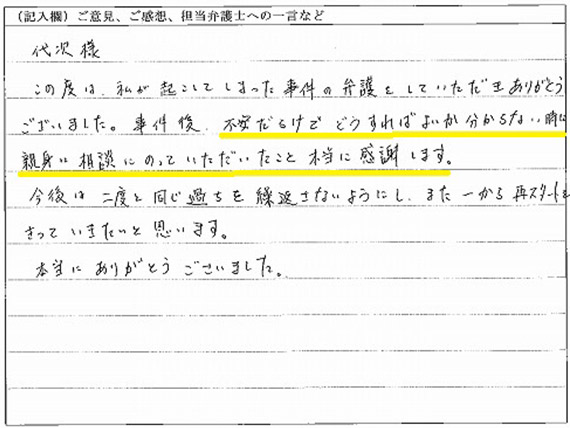 （記入欄）ご意見、ご感想、担当弁護士への一言など
代次様
この度は、私が起こしてしまった事件の弁護をしていただきありがとう
ございました。事件後、不安だらけでどうすればよいか分からない時に
親身に相談にのっていただいたこと本当に感謝します。
今後は二度と同じ過ちを繰返さないようにし、また一から再スタートを
きっていきたいと思います。
本当にありがとうございました。